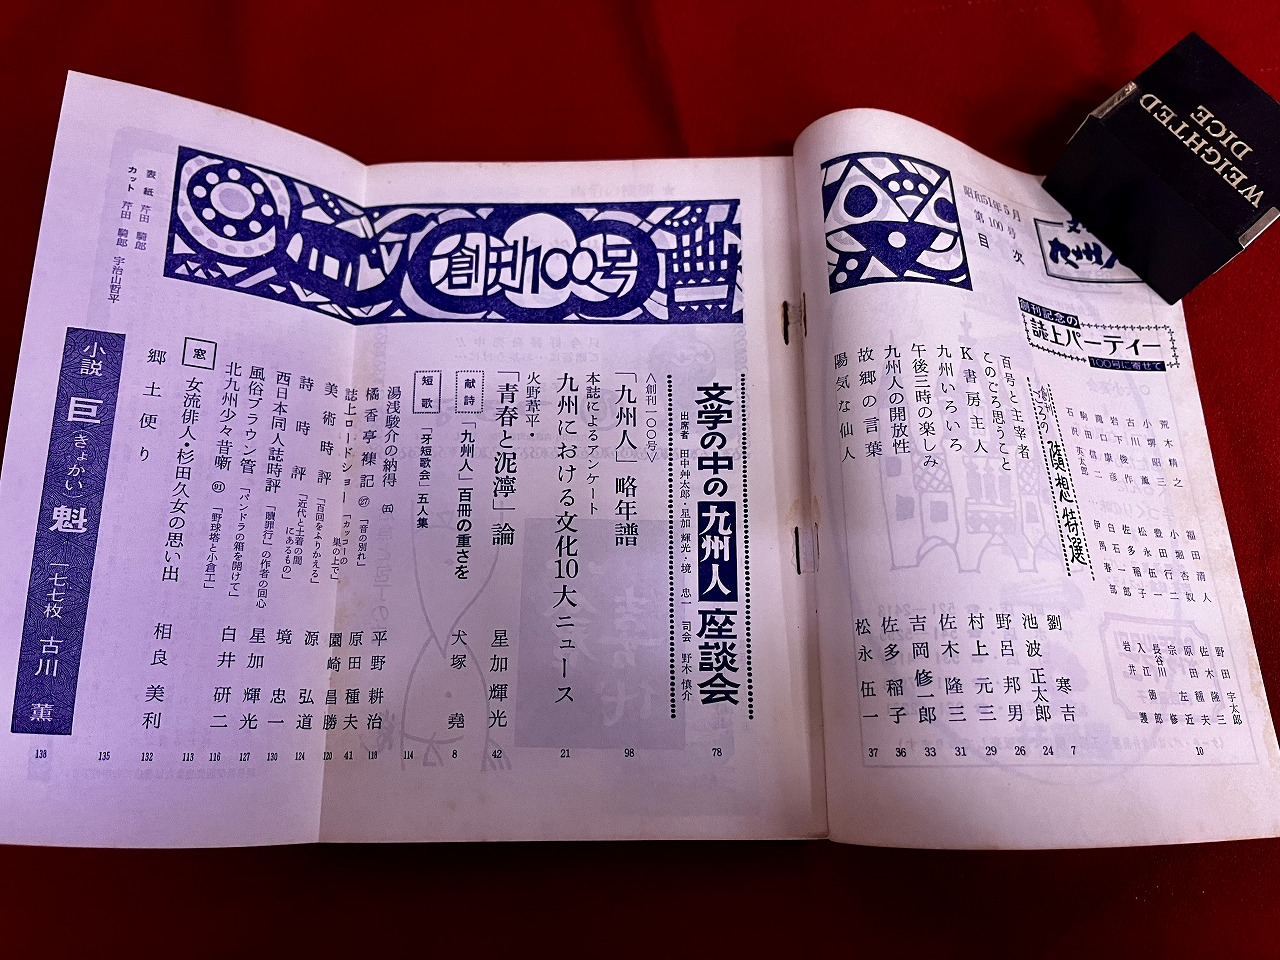 WEIGHTED
DICE
九州人
昭和51年5月
第100号
目次
創刊記念の
誌上パーティー
100号に寄せて
荒木精之
小堺昭三
古川薫
岩下俊作
滝口康彦
駒田信二
石沢英太郎
福田清人
小堀杏奴
豊田行二
松永伍一
佐多稲子
白石一郎
伊馬春部
野田宇太郎
佐木隆三
原田種夫
宗左近
長谷川修
入江徳郎
岩井護
10
随想特選
百号と主宰者 劉寒吉 7
このごろ思うこと 池波正太郎 24
K書房主人 野呂邦男 26
九州いろいろ 村上元三 29
午後三時の楽しみ 佐木隆三 31
九州人の開放性 吉岡修一郎 33
故郷の言葉 佐多稲子 36
陽気な仙人 松永伍一 37
創刊100号
文学の中の九州人座談会 78
出席者 田中艸太郎・星加輝光・境忠一 司会 野木慎介
〈創刊一〇〇号〉
「九州人」略年譜 98
本誌によるアンケート
九州における文化10大ニュース 21
火野葦平
「青春と泥濘」論 星加輝光 42
献詩 「九州人」百冊の重さを 犬塚堯 8
短歌 「牙短歌会」五人集
湯浅駿介の納得 (五) 114
橘香亭襍記 ㉗ 「音の別れ」 平野耕治 118
誌上ロードショー 「カッコーの巣の上で」 原田種夫 41
美術時評 「百回をふりかえる」 園崎昌勝 120
詩時評 「近代と土着の間にあるもの」 源弘道 124
西日本同人誌時評 「贖罪行」の作者の回心 境忠一 130
風俗ブラウン管 「パンドラの箱を開けて」 星加輝光 127
北九州少々昔噺 91 「野球塔と小倉工」 白井研二 116
窓 113
女流俳人・杉田久女の思い出 相良美利 132
郷土便り 135
小説 巨魁(きょかい) 一七七枚 古川薫 138
表紙 芹田騎郎
カット 芹田騎郎 宇治山哲平